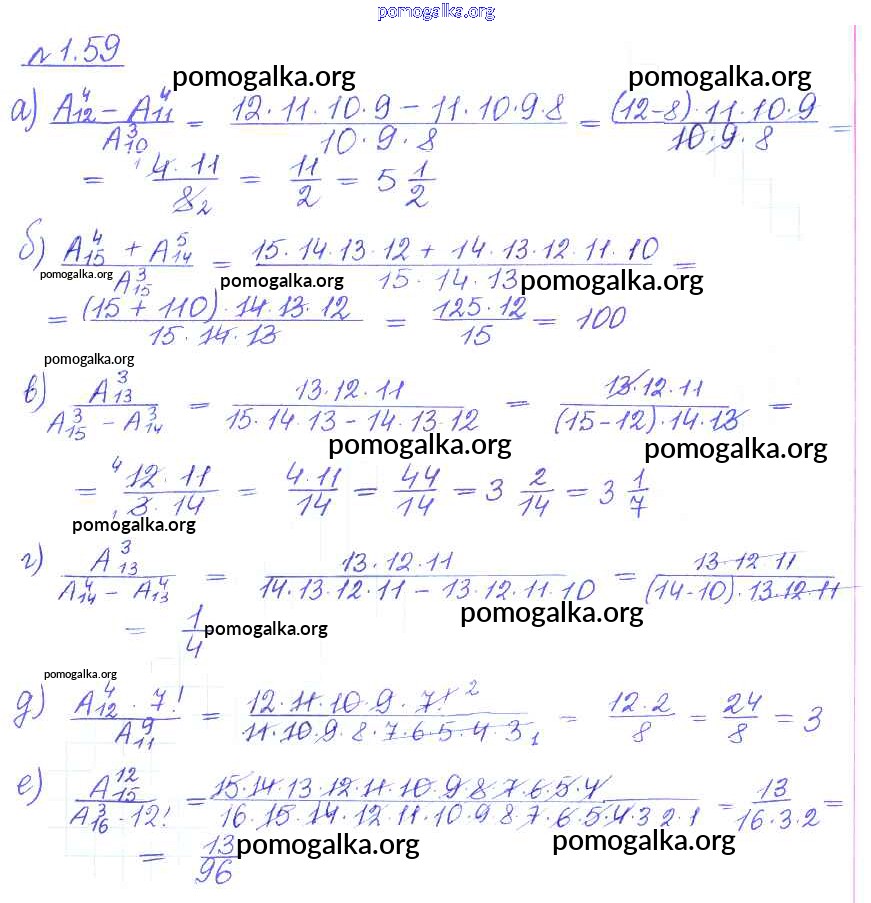 pomogalka.org
№1.59
pomogalka.org pomogalka.org
а) (A⁴₁₂ − A⁴₁₁)/A³₁₀ = (12·11·10·9 − 11·10·9·8)/(10·9·8) = ((12−8)·11·10·9)/(10·9·8) =
= (4·11)/8 1 2 = 11/2 = 5 1/2
б) (A⁴₁₅ + A⁵₁₄)/A³₁₅ = (15·14·13·12 + 14·13·12·11·10)/(15·14·13) =
pomogalka.org pomogalka.org pomogalka.org
= ((15 + 110)·14·13·12)/(15·14·13) = (125·12)/15 = 100
pomogalka.org
в) A³₁₃/(A³₁₅ − A³₁₄) = (13·12·11)/(15·14·13 − 14·13·12) = (13·12·11)/((15−12)·14·13) =
pomogalka.org pomogalka.org
= 4 (12·11)/(1 3·14) = (4·11)/14 = 44/14 = 3 2/14 = 3 1/7
pomogalka.org
г) A³₁₃/(A⁴₁₄ − A⁴₁₃) = (13·12·11)/(14·13·12·11 − 13·12·11·10) = (13·12·11)/((14−10)·13·12·11)
pomogalka.org
= 1/4
pomogalka.org
pomogalka.org
д) (A⁴₁₂·7!)/A⁹₁₁ = (12·11·10·9·7! 2)/(11·10·9·8·7·6·5·4·3 1) = (12·2)/8 = 24/8 = 3
е) A¹²₁₅/(A³₁₆·12!) = (15·14·13·12·11·10·9·8·7·6·5·4)/(16·15·14·12·11·10·9·8·7·6·5·4·3·2·1) = 13/(16·3·2) =
pomogalka.org pomogalka.org
= 13/96